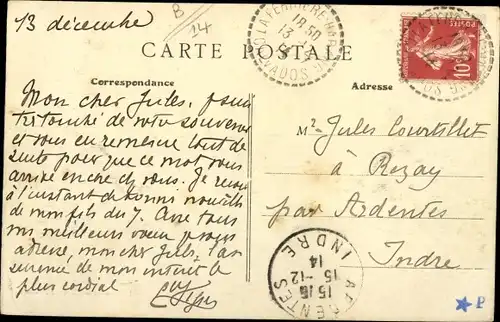 13 décembre
B
14
LA FERRIERE HARANG
18 30
13
CALVADOS
10c
POSTES
CARTE POSTALE
Correspondance
Adresse
Mon cher Jules, je suis
de votre souvenir
et vous en remercie tout de
suite pour que ce mot vous
arrive encore chez vous. Je reçois
à l'instant de bonnes nouvelles
de mon fils du 7. Avec tous
mes meilleurs vœux
mon cher Jules, l'as-
surance de mon intérêt le
plus cordial
Mr Jules Courtillet
à Rezay
par Ardentes
Indre
ARDENTES
15 15
15-12
14
INDRE
P